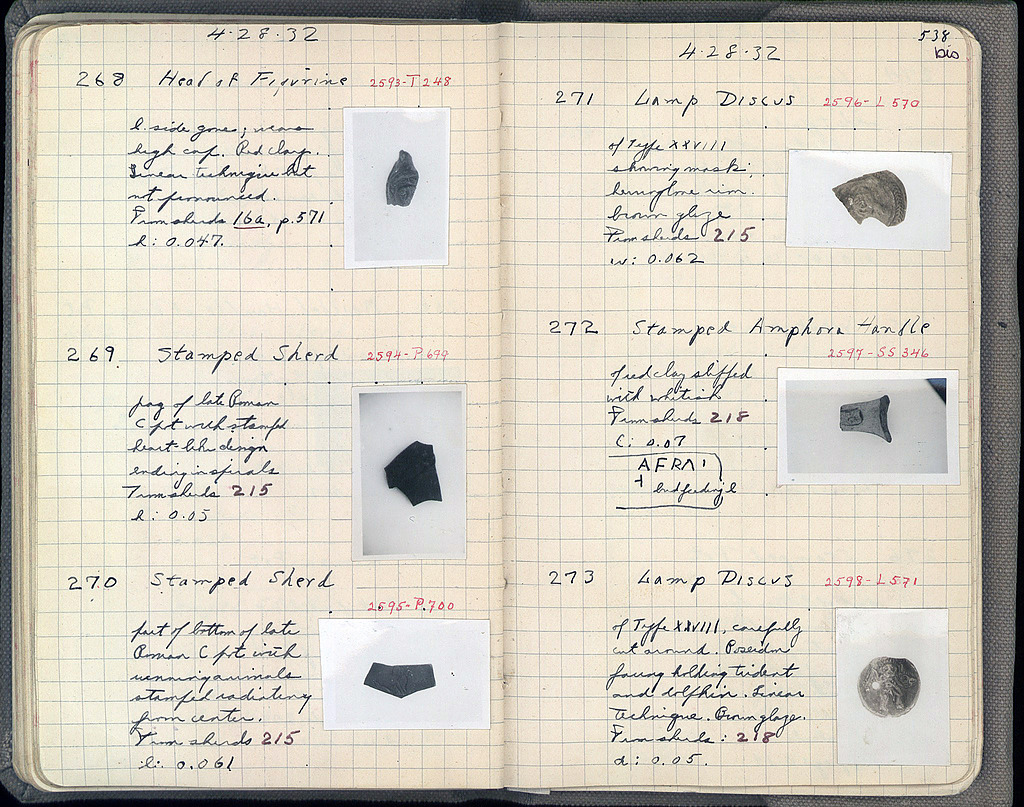 4·28·32
268 Head of Figurine 2593-T 248
l. side gone; wears
high cap. Red clay.
Linear technique but
not pronounced.
From sherds 16a, p.571
h: 0.047.
269 Stamped Sherd 2594-P.699
frag of late Roman
C pot with stamped
heart-like design
ending in spirals
From sherds 215
l: 0.05
270 Stamped Sherd
2595-P.700
part of bottom of late
Roman C pot with
running animals
stamped radiating
from center.
From sherds 215
l: 0.061
538
bis
4·28·32
271 Lamp Discus 2596-L 570
of Type XXVIII
showing mask;
herringbone rim.
brown glaze
From sherds 215
w: 0.062
272 Stamped Amphora Handle
2597-SS 346
of red clay slipped
with whitish
From sherds 218
l: 0.07
AFRAI
273 Lamp Discus 2598-L 571
of Type XXVIII, carefully
cut around. Poseidon
facing holding trident
and dolphin. Linear
technique. Brown glaze.
From sherds: 218
d: 0.05.